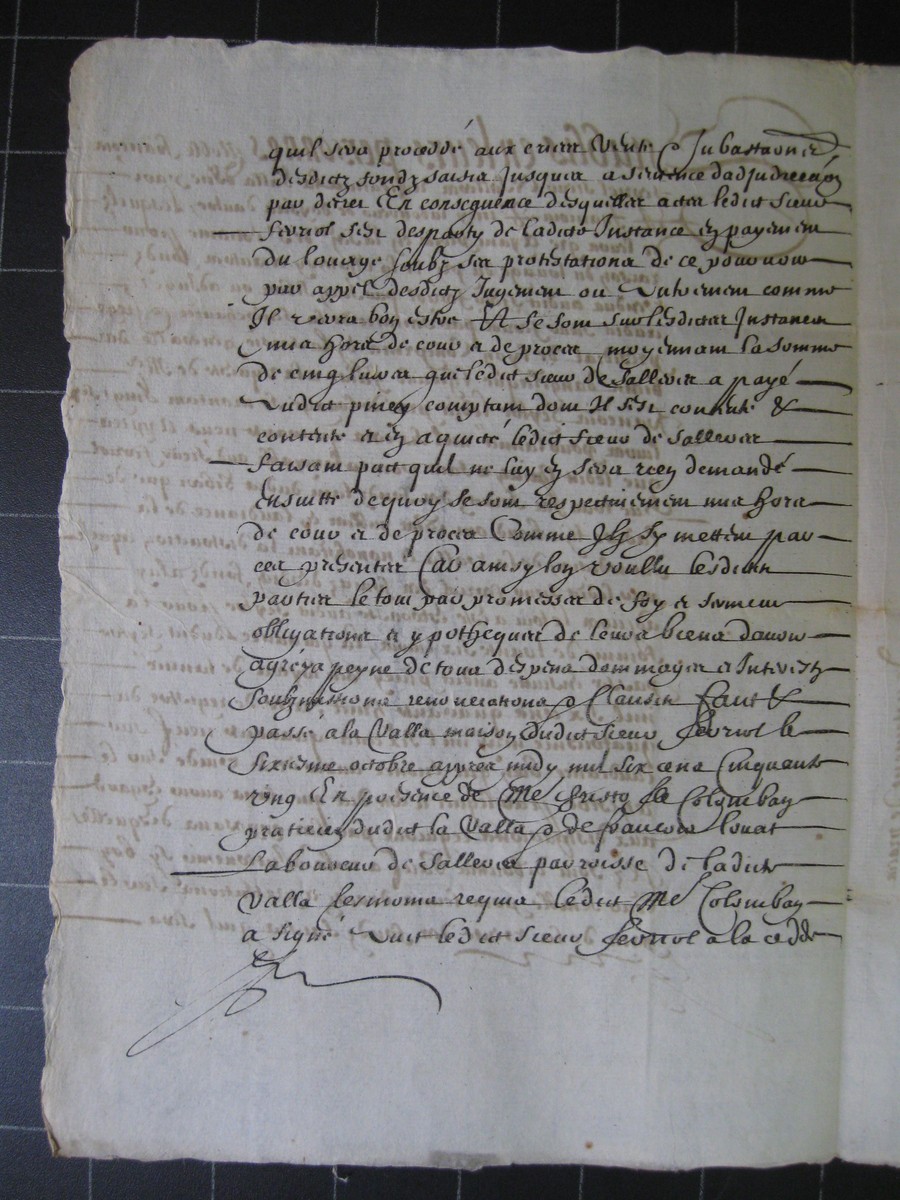 quil sera procédé aux criees vente & subastaons
desdictz fondz saisis jusques a sentence dadjudicaon
par decret En consequence desquelles actes ledict sieur
feriol sest desparty de ladicte Instance en payement
du louage soubz ses protestations de ce pourvoir
par appel desdictz Jugement ou autrement comme
Il verra bon estre Et se sont sur lesdictes Instances
mis hors de cour et de proces moyennant la somme
de cinq livres que ledict sieur de sallever a payé
audict piney comptant dont Il sest contenté &
contente et en a quicté ledict sieur de sallever
faisant pact quil ne luy en sera rien demandé
Ensuitte dequoy se sont respectivement mis hors
de cour et de proces Comme Ilz sy mettent par
ces presentes Car ainsy lon voullu lesdictes
parties le tout par promesses de foy et serment
obligations et ypotheques de leurs biens davoir
agré a peyne de tous despens dommages et Interestz
soubzmissions renonciations & clauses faict &
passé a la Valla maison dudict sieur feriol le
sixiesme octobre appres midy mil six cens cinquante
cinq En presence de Me Colombay
praticien dudict la Valla & de francois louat
laboureur de sallever parroisse de ladicte
valla tesmoins requis ledict Me Colombay
a signé avec ledict sieur feriol a la cedde